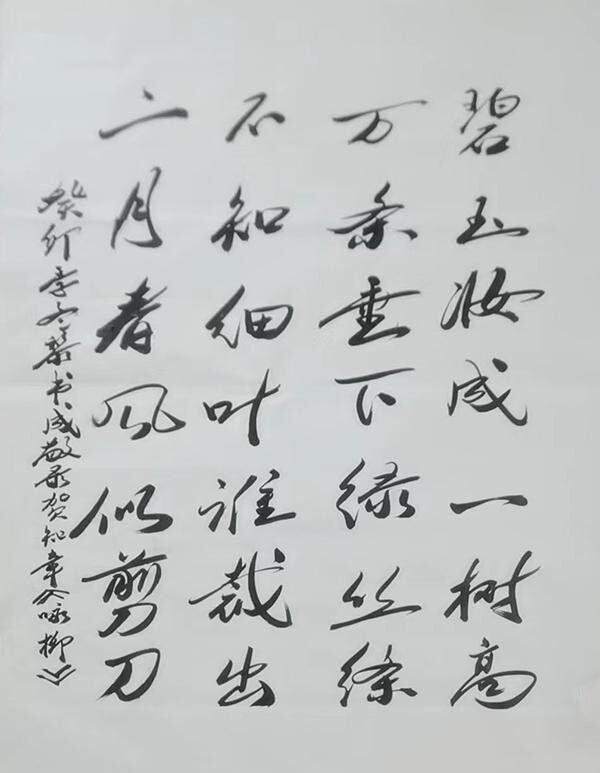 碧玉妆成一树高
万条垂下绿丝绦
不知细叶谁裁出
二月春风似剪刀
癸卯季冬 书成敬录贺知章《咏柳》